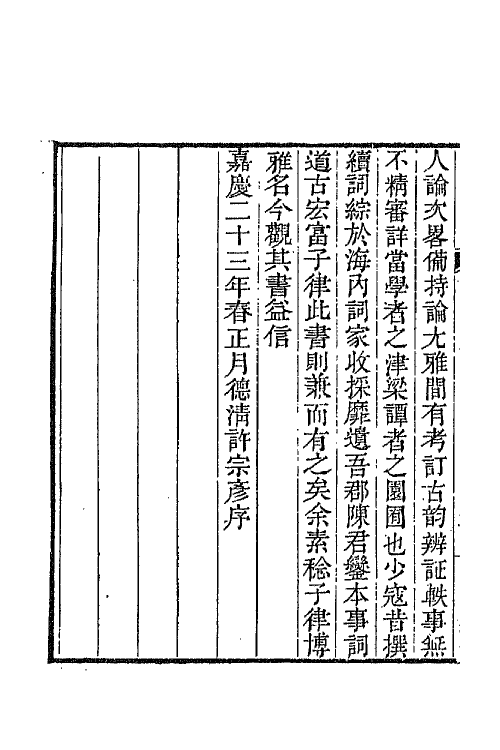 人論次畧備持論尢雅間有考訂古韵辨証軼事無
不精審詳當學者之津梁譚者之園囿也少寇昔撰
續詞綜於海内詞家收採靡遺吾郡陳君鑾本事詞
道古宏富子律此書則兼而有之矣余素稔子律博
雅名今觀其書益信
嘉慶二十三年春正月德淸許宗彥序